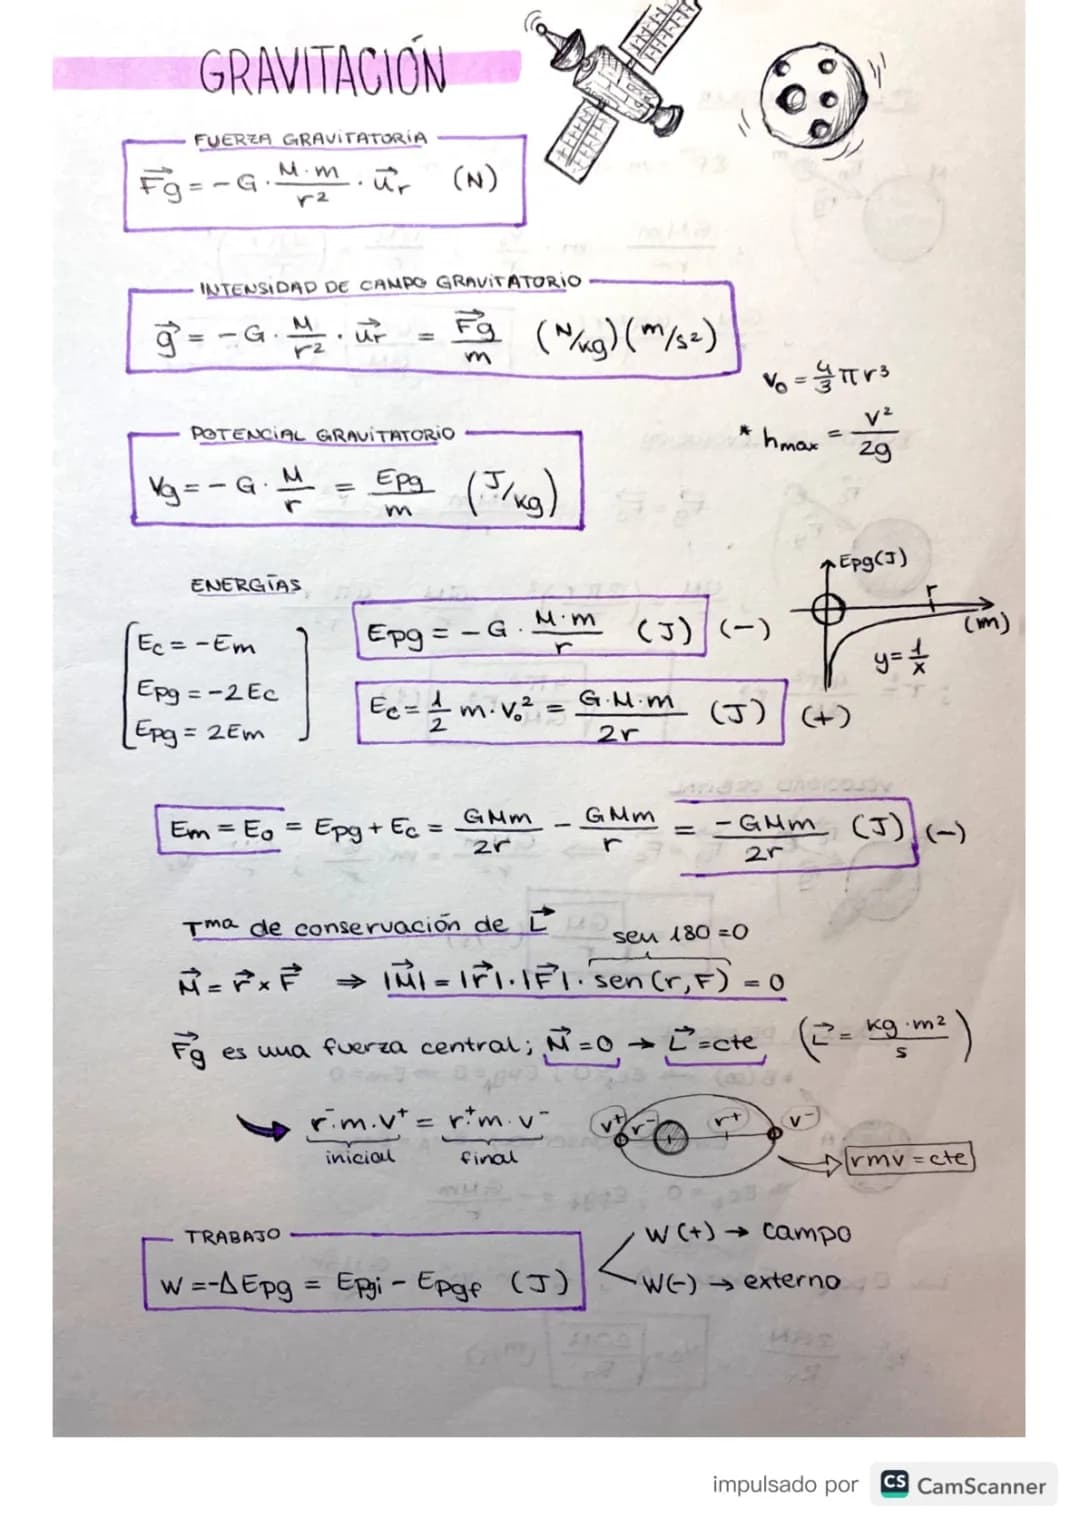 GRAVITACIÓN
FUERZA GRAVITATORIA
F⃗g = - G · M·m/r² · u⃗r (N)
INTENSIDAD DE CAMPO GRAVITATORIO
g⃗ = - G · M/r² · u⃗r = F⃗g/m (N/kg) (m/s²)
V₀ = 4/3 π r³
* hmax = v²/2g
POTENCIAL GRAVITATORIO
Vg = - G · M/r = Epg/m (J/kg)
ENERGÍAS
Ec = -Em
Epg = -2Ec
Epg = 2Em
Epg = - G · M·m/r (J) (-)
Ec = 1/2 m · V₀² = G·M·m/2r (J) (+)
Epg(J)
r
(m)
y = 1/x
Em = E₀ = Epg + Ec = GMm/2r - GMm/r = -GMm/2r (J) (-)
Tma de conservación de L⃗
sen 180 = 0
M⃗ = r⃗ x F⃗ ⇒ |M⃗| = |r⃗| · |F⃗| · sen (r, F) = 0
F⃗g es una fuerza central; M⃗ = 0 → L⃗ = cte (L⃗ = kg·m²/s)
r⁻·m·v⁺ = r⁺m·v⁻
inicial final
v⁺ r⁻ r⁺ v⁻
rmv = cte
TRABAJO
W = -ΔEpg = Epgi - Epgf (J)
W (+) → campo
W(-) → externo
impulsado por CS CamScanner